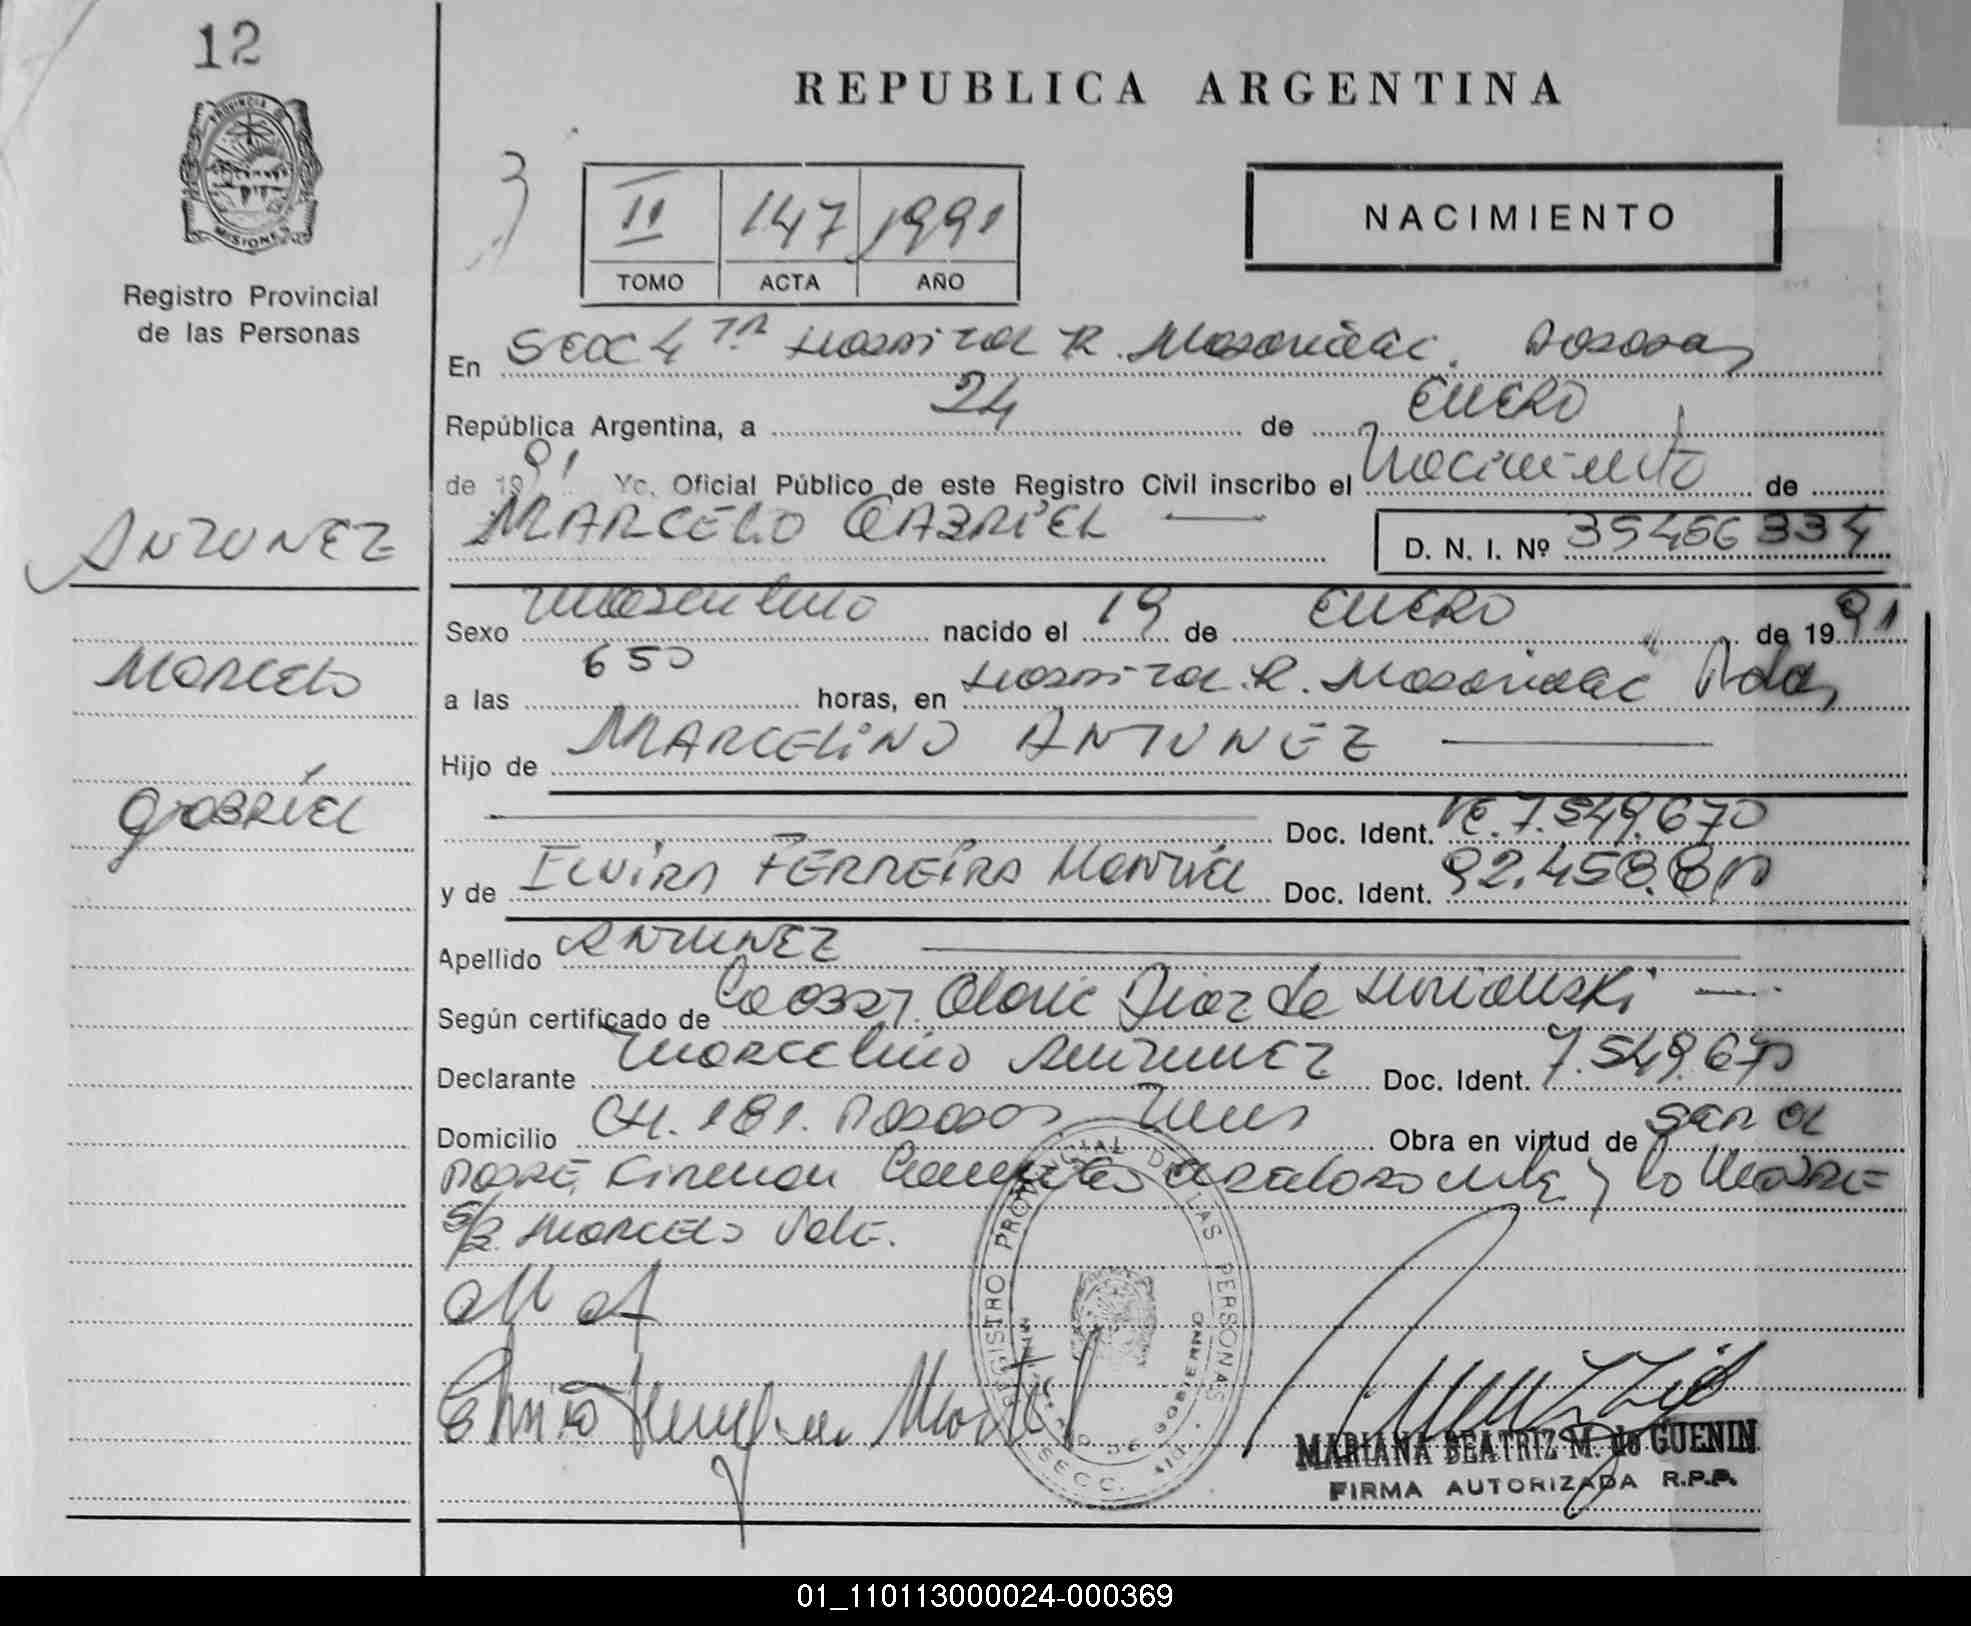 12
PROVINCIA DE
MISIONES
Registro Provincial
de las Personas
ANTUNEZ
MARCELO
GABRIEL
REPUBLICA ARGENTINA
3
II 147 1991
TOMO ACTA AÑO
NACIMIENTO
En SECC 4 Hospital R. Madariaga. Posadas
República Argentina, a 24 de ENERO
de 1991 Yo, Oficial Público de este Registro Civil inscribo el Nacimiento de
MARCELO GABRIEL D. N. I. Nº 35456334
Sexo Masculino nacido el 19 de ENERO de 1991
a las 650 horas, en Hospital R. Madariaga Pdas
Hijo de MARCELINO ANTUNEZ
Doc. Ident. 7.549.670
y de ELVIRA FERREIRA MONTIEL Doc. Ident. 92.458.8
Apellido ANTUNEZ
Según certificado de Diaz de
Declarante Marcelino ANTUNEZ Doc. Ident. 7.549.670
Domicilio CH. 181. Posadas Mnes Obra en virtud de SER EL
PADRE, Firman y la MADRE
MARCELO Vale.
REGISTRO PROVINCIAL DE LAS PERSONAS
DE GOBIERNO
SECC.
MARIANA BEATRIZ M. de GUENIN
FIRMA AUTORIZADA R.P.P.
01_110113000024-000369